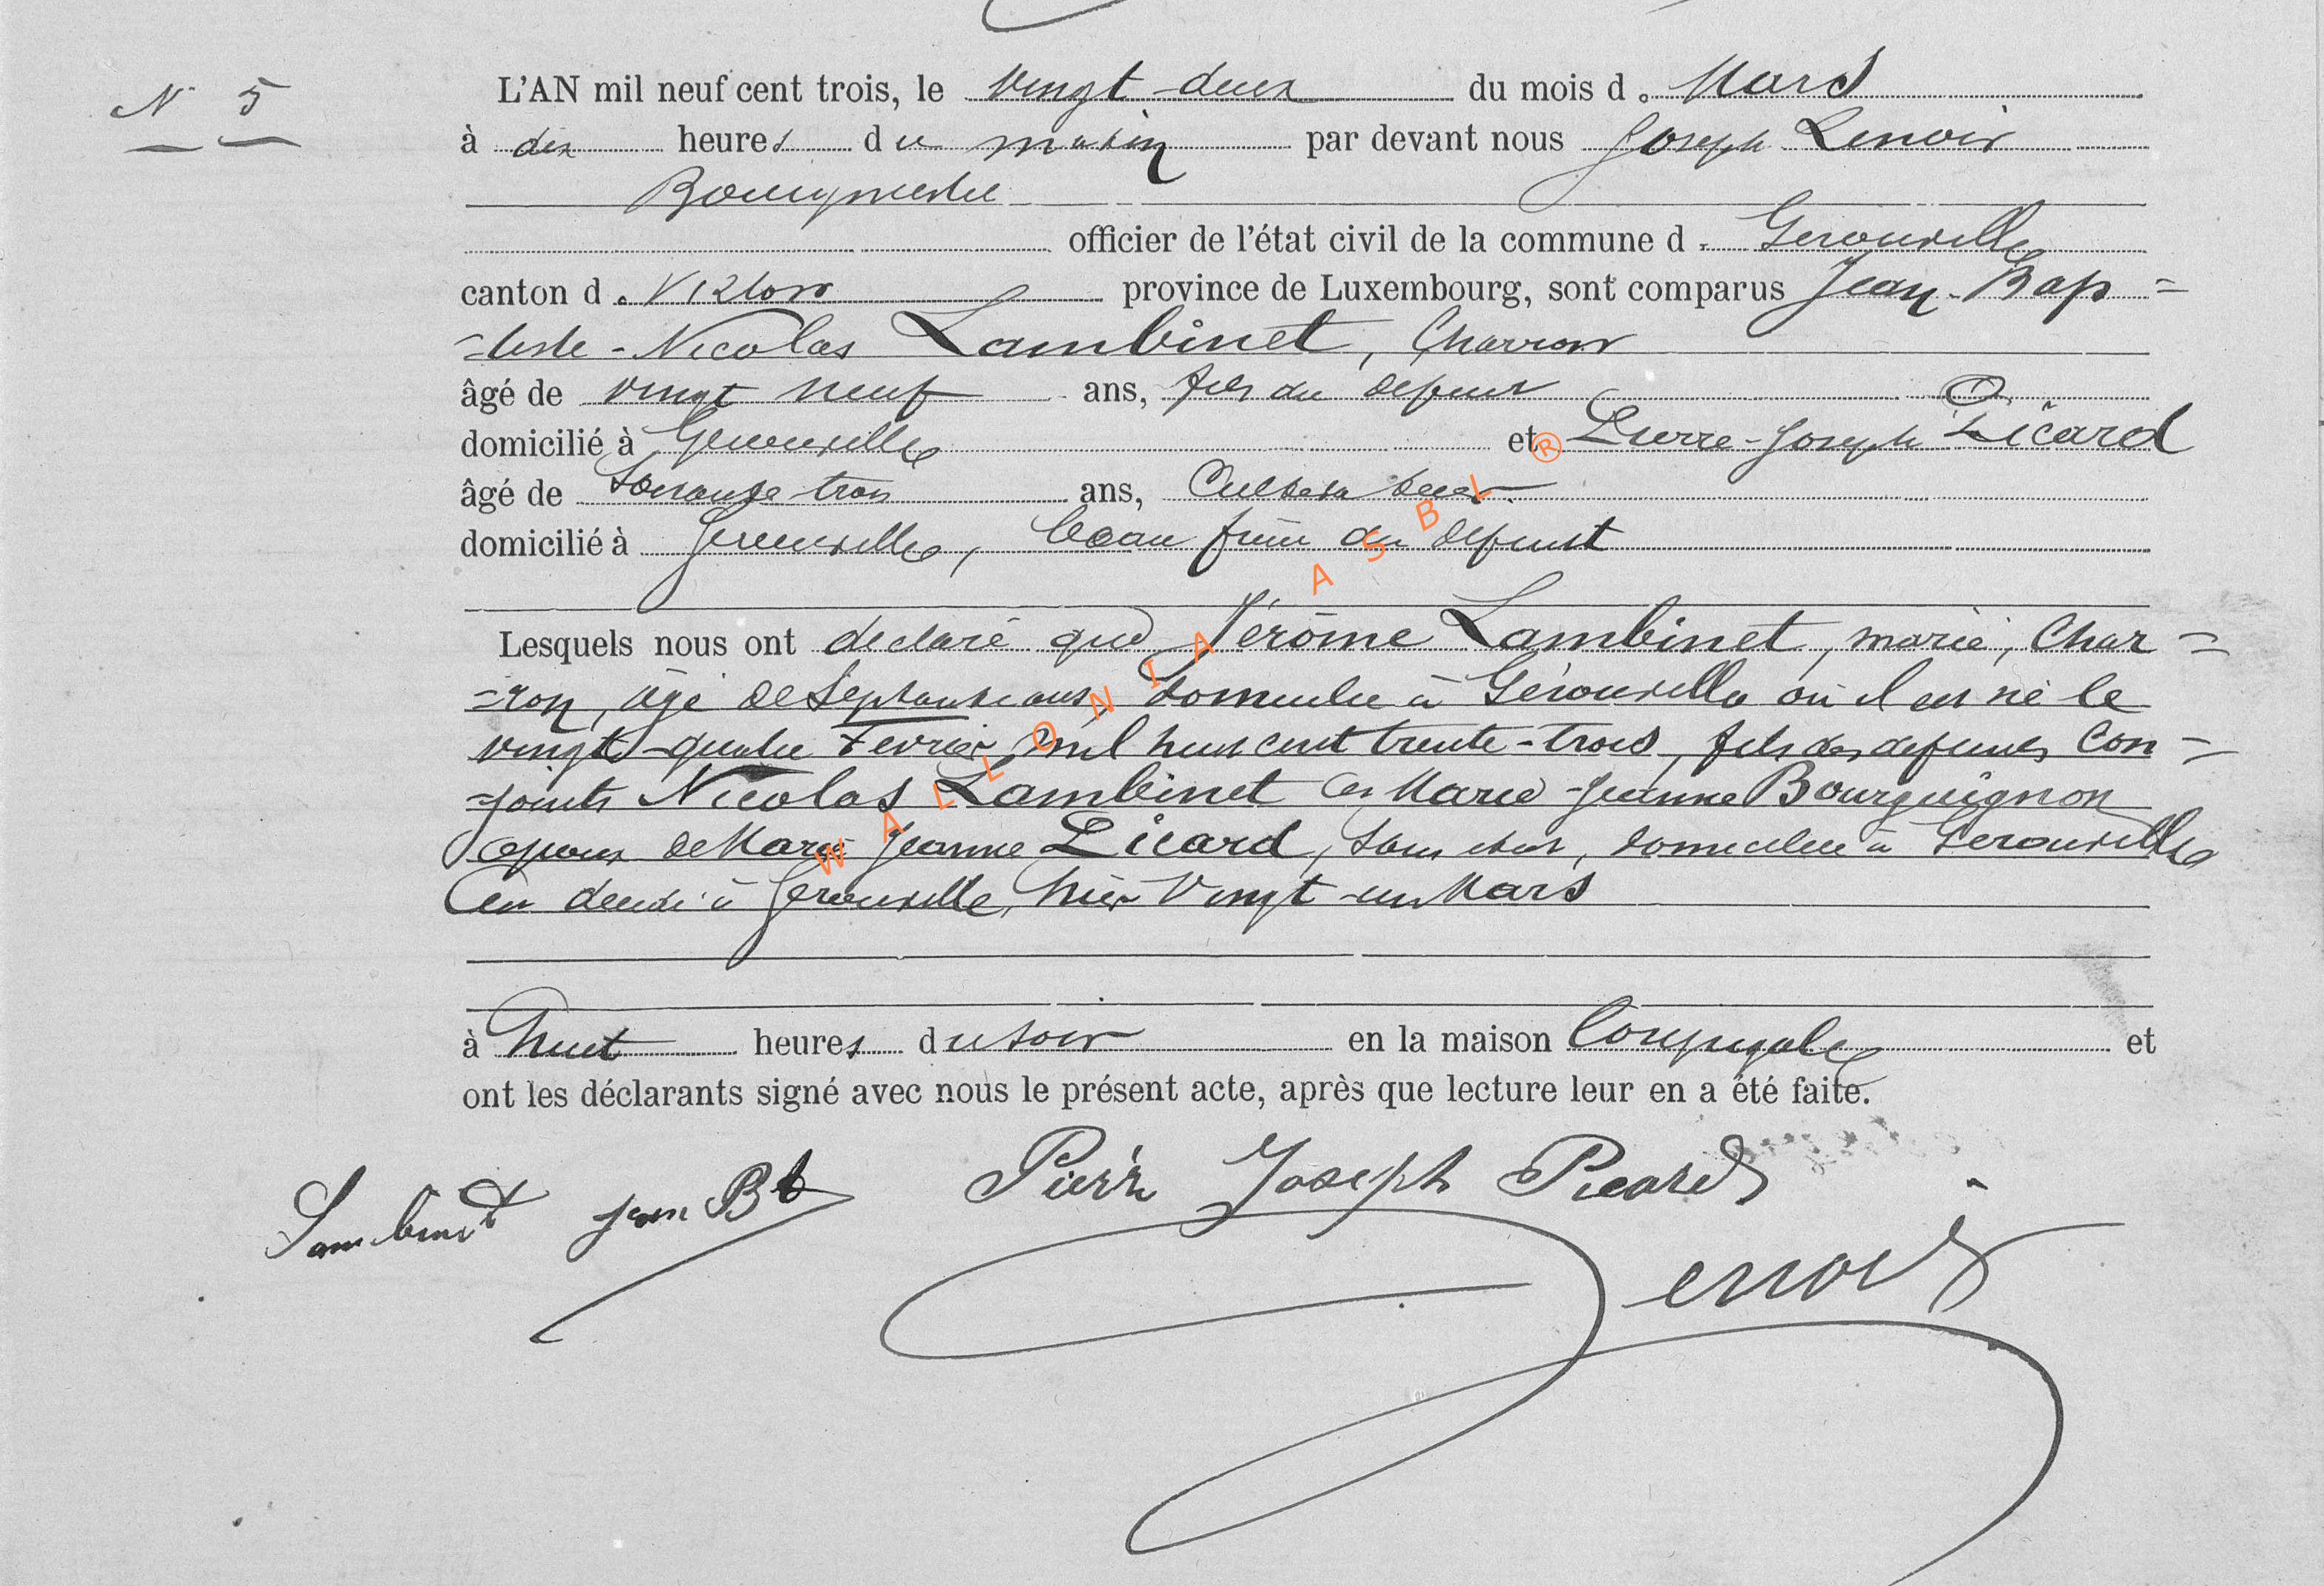 N° 5
L'AN mil neuf cent trois, le vingt-deux du mois de Mars
à dix heures du matin par devant nous Joseph Lenoir
Bourgmestre
officier de l'état civil de la commune de Gerouville
canton de Virton province de Luxembourg, sont comparus Jean-Bap=
=tiste-Nicolas Lambinet, Charron
âgé de vingt neuf ans, fils du defunt
domicilié à Gerouville et Pierre-Joseph Picard
âgé de Soixante trois ans, Cultivateur
domicilié à Gerouville, beau frère du defunt
Lesquels nous ont declaré que Jérôme Lambinet, marié, Char=
=ron, âgé de Septante ans, domicilié à Gérouville où il est né le
vingt-quatre Fevrier mil huit cent trente-trois, fils des defunts Con=
=joints Nicolas Lambinet et Marie-Jeanne Bourguignon
epoux de Marie Jeanne Picard, sans etat, domiciliée à Gerouville
est decedé à Gerouville, hier Vingt-un Mars
à huit heures du soir en la maison Conjugale et
ont les déclarants signé avec nous le présent acte, après que lecture leur en a été faite.
Lambinet jean Bt Pierre Joseph Picard
Lenoir
WALLONIA ASBL ®